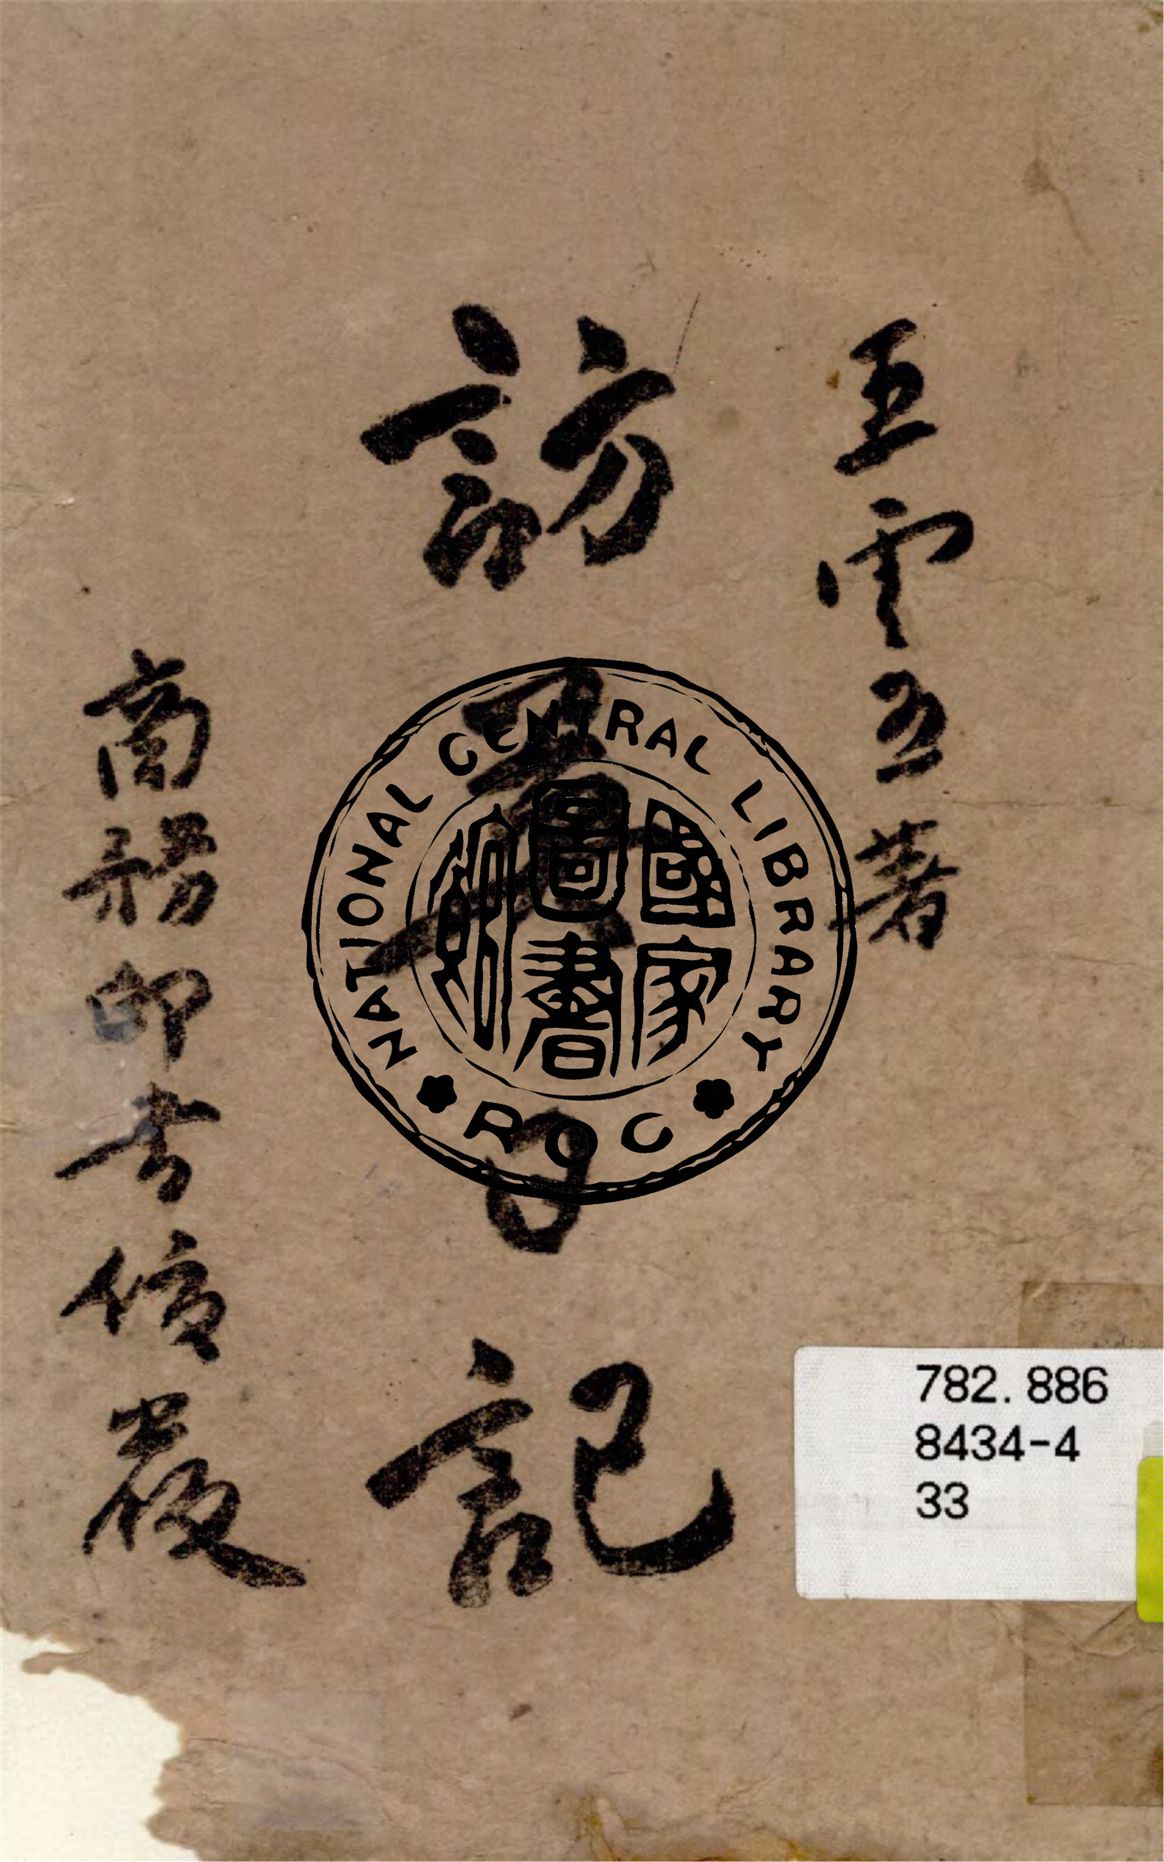 王雲五著
訪英日記
商務印書館
NATIONAL CENTRAL LIBRARY
國家
圖書
館
ROC
782.886
8434-4
33